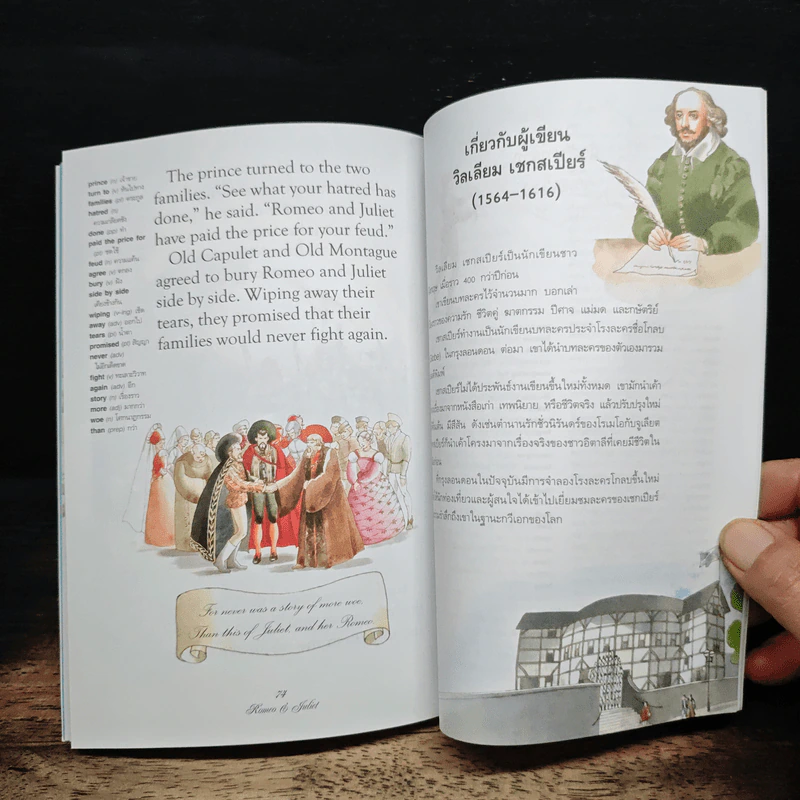 prince (n) เจ้าชาย
turn to (v) หันไปทาง
families (pl) ครอบครัว
hatred (n)
ความเกลียดชัง
done (pp) ทำ
paid the price for
(pt) ชดใช้
feud (n) ความแค้น
agree (v) ตกลง
bury (v) ฝัง
side by side
เคียงข้างกัน
wiping (v-ing) เช็ด
away (adv) ออกไป
tears (pl) น้ำตา
promised (pt) สัญญา
never (adv)
ไม่อีกต่อไป
fight (v) ทะเลาะวิวาท
again (adv) อีก
story (n) เรื่องราว
more (adj) มากกว่า
woe (n) โศกนาฏกรรม
than (prep) กว่า
The prince turned to the two
families. “See what your hatred has
done,” he said. “Romeo and Juliet
have paid the price for your feud.”
Old Capulet and Old Montague
agreed to bury Romeo and Juliet
side by side. Wiping away their
tears, they promised that their
families would never fight again.
For never was a story of more woe,
Than this of Juliet, and her Romeo.
74
Romeo & Juliet
เกี่ยวกับผู้เขียน
วิลเลียม เชกสเปียร์
(1564–1616)
วิลเลียม เชกสเปียร์เป็นนักเขียนชาว
เมื่อราว 400 กว่าปีก่อน
เขาเขียนบทละครไว้จำนวนมาก บอกเล่า
ของความรัก ชีวิตคู่ ฆาตกรรม ปีศาจ แม่มด และกษัตริย์
เชกสเปียร์ทำงานเป็นนักเขียนบทละครประจำโรงละครชื่อโกลบ
ในกรุงลอนดอน ต่อมา เขาได้นำบทละครของตัวเองมารวม
เชกสเปียร์ไม่ได้ประพันธ์งานเขียนขึ้นใหม่ทั้งหมด เขามักนำเค้า
มาจากหนังสือเก่า เทพนิยาย หรือชีวิตจริง แล้วปรับปรุงใหม่
มีสีสัน ดังเช่นตำนานรักชั่วนิรันดร์ของโรเมโอกับจูเลียต
ที่นำเค้าโครงมาจากเรื่องจริงของชาวอิตาลีที่เคยมีชีวิตใน
กรุงลอนดอนในปัจจุบันมีการจำลองโรงละครโกลบขึ้นใหม่
นักท่องเที่ยวและผู้สนใจได้เข้าไปเยี่ยมชมละครของเชกสเปียร์
ถึงเขาในฐานะกวีเอกของโลก